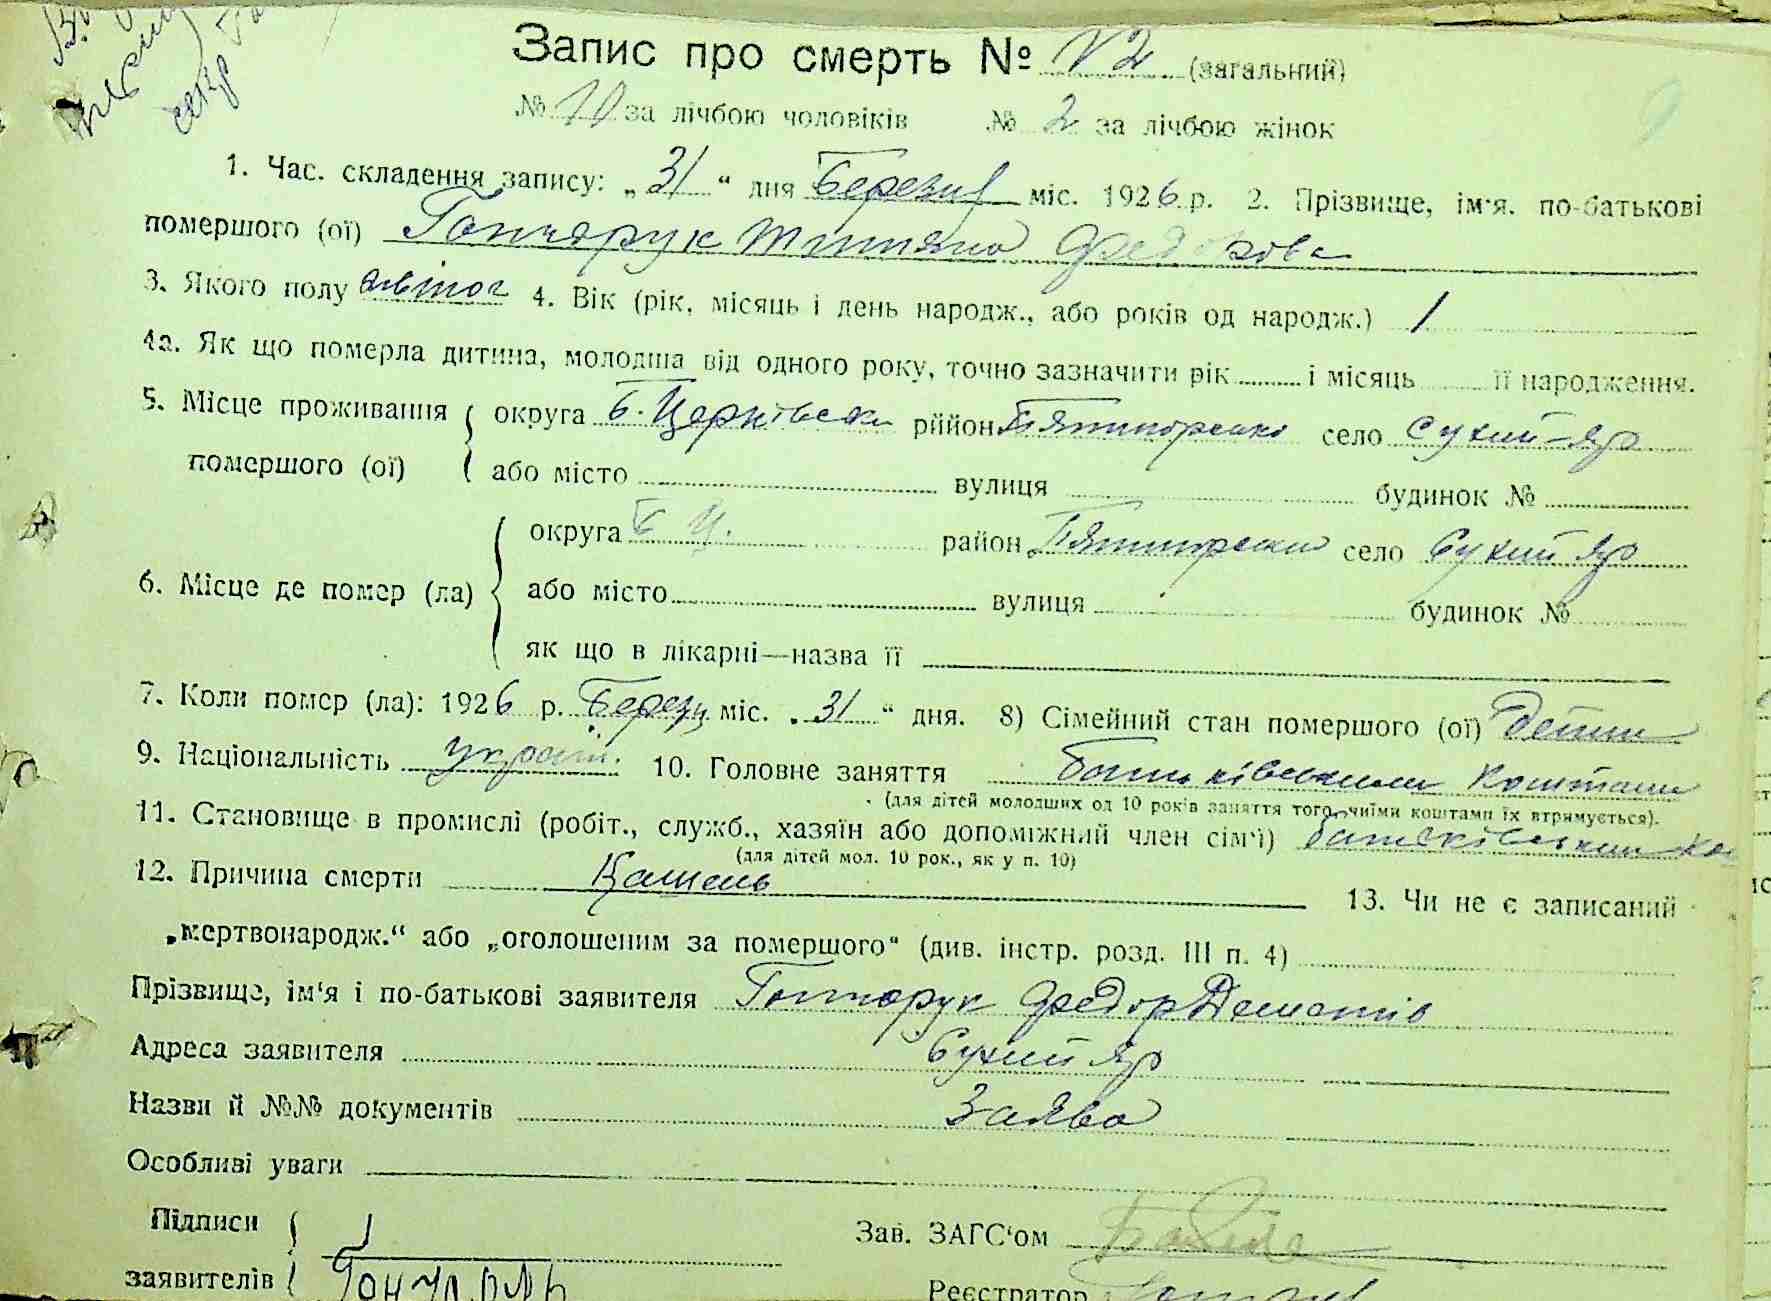 Запис про смерть № 12 (загальний)
№ 10 за лічбою чоловіків № 2 за лічбою жінок
1. Час. складення запису: „31“ дня Березня міс. 1926 р. 2. Прізвище, ім‘я. по-батькові
помершого (ої) Гончарук Тетяна Федорова
3. Якого полу 4. Вік (рік, місяць і день народж., або років од народж.) 1
4а. Як що померла дитина, молодша від одного року, точно зазначити рік і місяць її народження.
5. Місце проживання округа Б. Церківська район Пятигорський село Сухий-яр
помершого (ої) або місто вулиця будинок №
округа Б Ц. район Пятигорський село Сухий яр
6. Місце де помер (ла) або місто вулиця будинок №
як що в лікарні—назва її
7. Коли помер (ла): 1926 р. Березн міс. „31“ дня. 8) Сімейний стан помершого (ої)
9. Національність україн. 10. Головне заняття батьківськими коштами
(для дітей молодших од 10 років заняття того, чиїми коштами їх втримується).
11. Становище в промислі (робіт., служб., хазяїн або допоміжний член сім‘ї) батьківськими ко
(для дітей мол. 10 рок., як у п. 10)
12. Причина смерти Кашель 13. Чи не є записаний
„мертвонародж.“ або „оголошеним за помершого“ (див. інстр. розд. III п. 4)
Прізвище, ім‘я і по-батькові заявителя Гончарук Федор
Адреса заявителя Сухий яр
Назви й №№ документів Заява
Особливі уваги
Підписи Зав. ЗАГС‘ом
заявителів Реєстратор